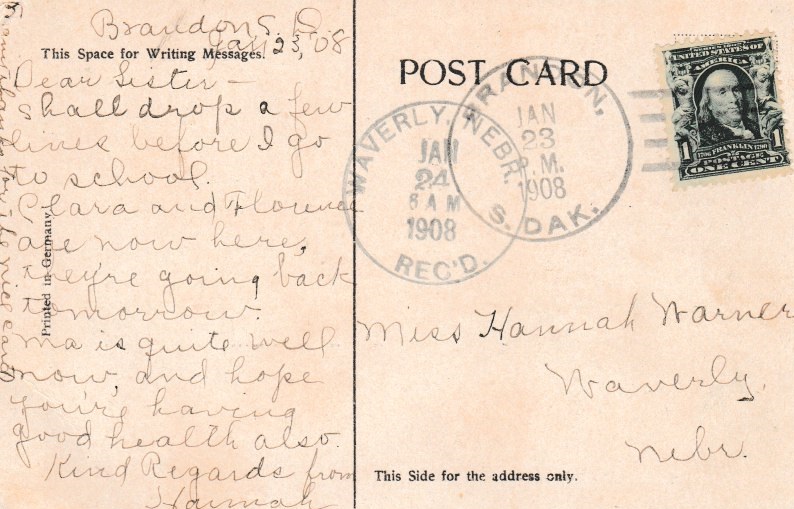 Brandon S. D.
Jan 23, '08
This Space for Writing Messages.
Dear Sister -
Shall drop a few
lines before I go
to school.
Clara and Florence
are now here,
they're going back
tomorrow.
Ma is quite well
now, and hope
you're having
good health also.
Kind Regards from
Hannah
Many thanks for the nice card
Printed in Germany
POST CARD
WAVERLY, NEBR.
JAN
24
6 AM
1908
REC'D.
BRANDON,
JAN
23
P.M.
1908
S. DAK.
SERIES 1902
UNITED STATES OF
AMERICA
1706 FRANKLIN 1790
POSTAGE
1 ONE CENT 1
Miss Hannah Warner
Waverly,
Nebr.
This Side for the address only.